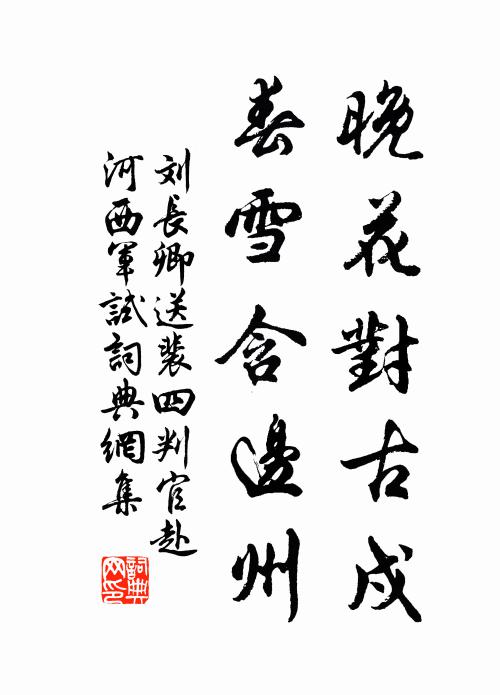 晚花對古戍
春雪含邊州
刘長卿送裴四判官赴
河西軍試詞典網集
詞典
网印